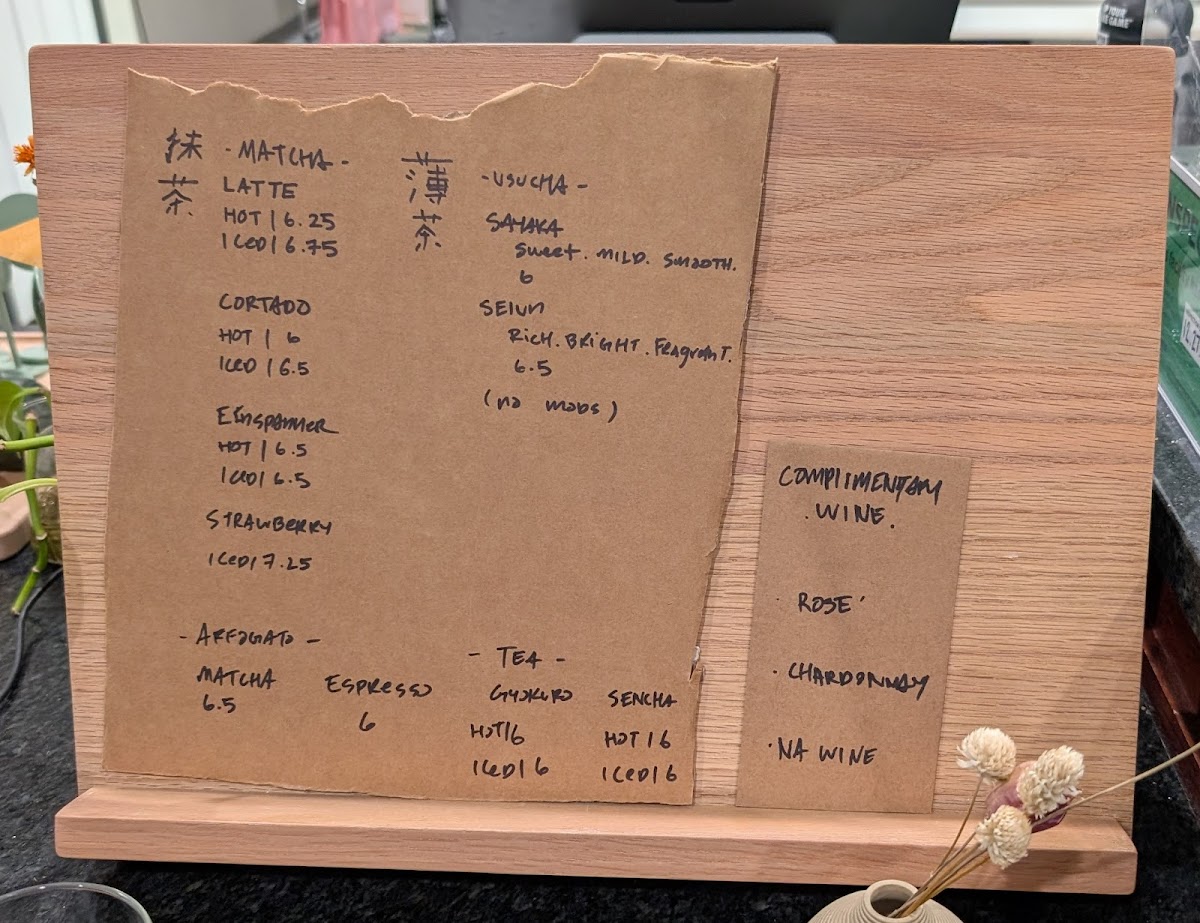 抹茶
- MATCHA -
LATTE
HOT | 6.25
ICED | 6.75
CORTADO
HOT | 6
ICED | 6.5
EINSPANNER
HOT | 6.5
ICED | 6.5
STRAWBERRY
ICED | 7.25
薄茶
- USUCHA -
SAYAKA
SWEET. MILD. SMOOTH.
6
SEIUN
RICH. BRIGHT. FRAGRANT.
6.5
(no mods)
- AFFOGATO -
MATCHA
6.5
ESPRESSO
6
- TEA -
GYOKURO
HOT | 6
ICED | 6
SENCHA
HOT | 6
ICED | 6
COMPLIMENTARY
. WINE .
· ROSE'
· CHARDONNAY
· NA WINE